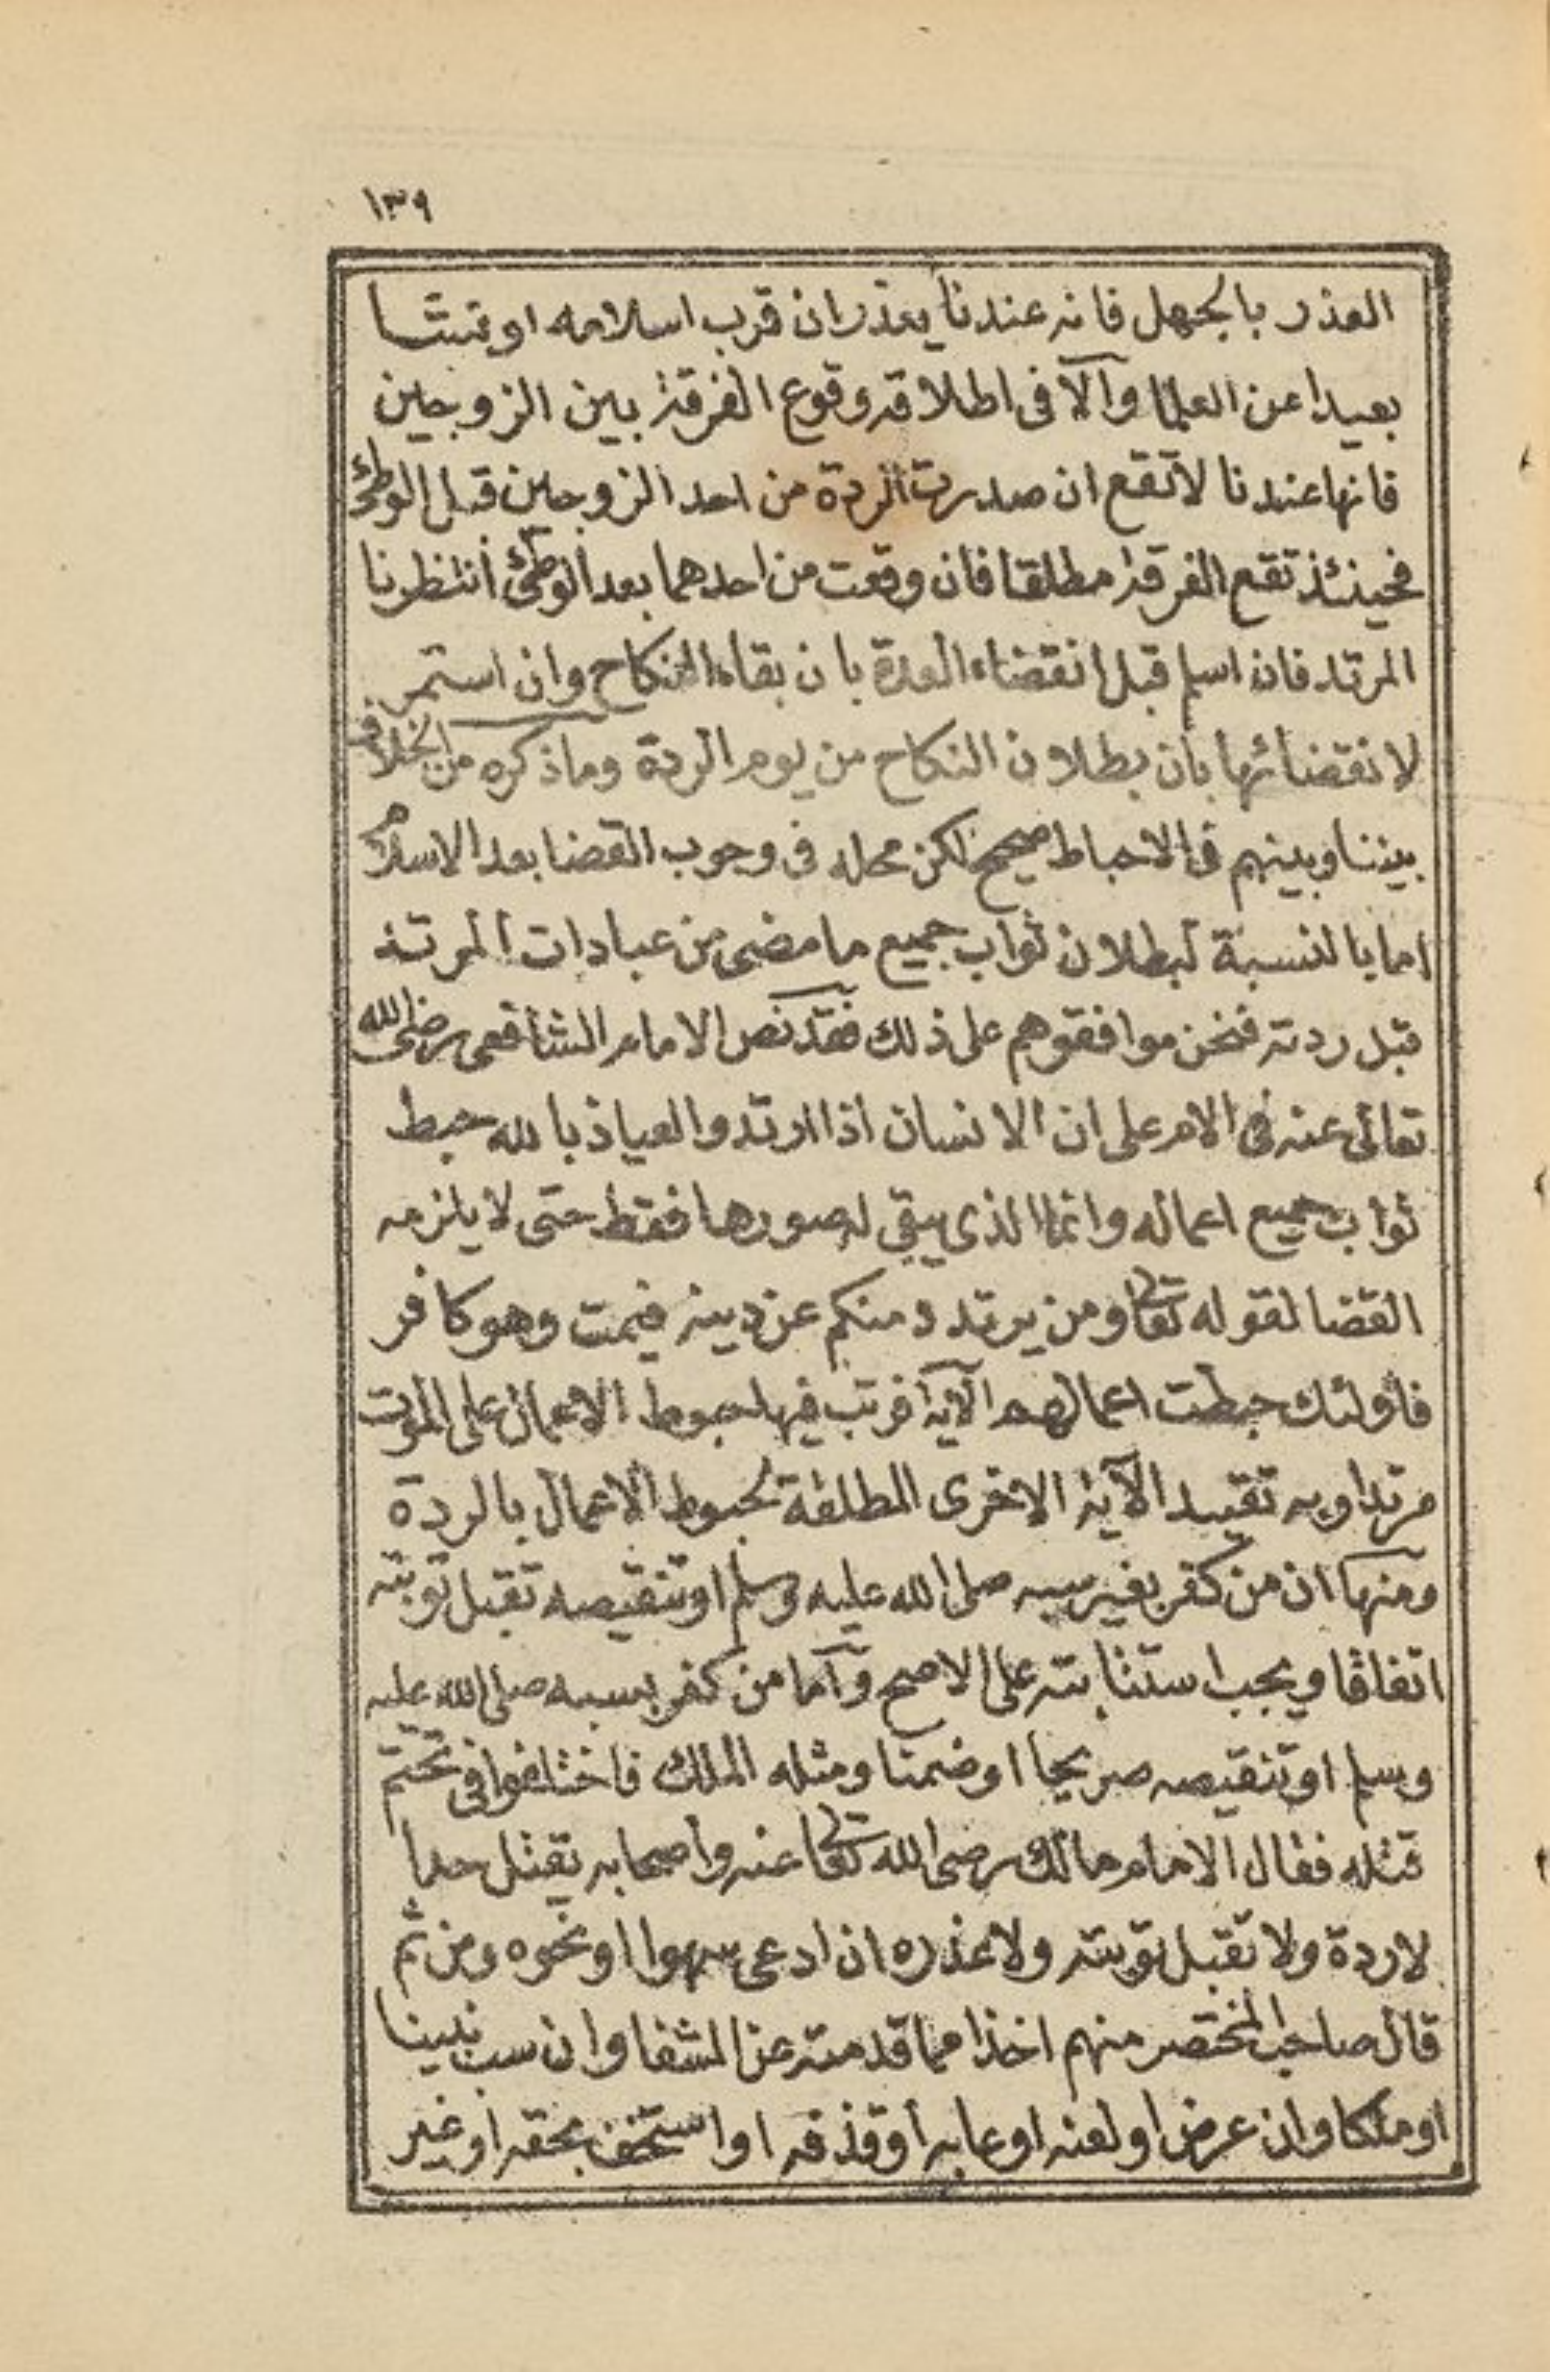 ١٣٩
العذر بالجهل فانه عندنا يعذر ان قرب اسلامه او نشا
بعيدا عن العلما والا في اطلاقه وقوع الفرقة بين الزوجين
فانها عندنا لا تقع ان صدرت الردة من احد الزوجين قبل الوطئ
فحينئذ تقع الفرقة مطلقا فان وقعت من احدهما بعد الوطئ انتظرنا
المرتد فان اسلم قبل انقضاء العدة بان بقاء النكاح وان استمر
لانقضائها بان بطلان النكاح من يوم الردة وما ذكره من الخلاف
بيننا وبينهم في الاحباط صحيح لكن محله في وجوب القضا بعد الاسلام
اما بالنسبة لبطلان ثواب جميع ما مضى من عبادات المرتد
قبل ردته فنحن موافقوهم على ذلك فقد نص الامام الشافعي رضي الله
تعالى عنه في الام على ان الانسان اذا ارتد والعياذ بالله حبط
ثواب جميع اعماله وانما الذي يبقى له صورها فقط حتى لا يلزمه
القضا لقوله تعا ومن يرتدد منكم عن دينه فيمت وهو كافر
فاولئك حبطت اعمالهم الآية فرتب فيها حبوط الاعمال على الموت
مرتدا وبه تقييد الآية الاخرى المطلقة لحبوط الاعمال بالردة
ومنها ان من كفر بغير سبه صلى الله عليه وسلم او تنقيصه تقبل توبته
اتفاقا ويجب استتابته على الاصح واما من كفر بسبه صلى الله عليه
وسلم او تنقيصه صريحا او ضمنا ومثله الملك فاختلفوا في تحتم
قتله فقال الامام مالك رضي الله تعا عنه واصحابه يقتل حدا
لا ردة ولا تقبل توبته ولا عذره ان ادعى سهوا او نحوه ومن ثم
قال صاحب المختصر منهم اخذا مما قدمته عن الشفا وان سب نبينا
او ملكا وان عرض او لعنه او عابه او قذفه او استخف بحقه او غير